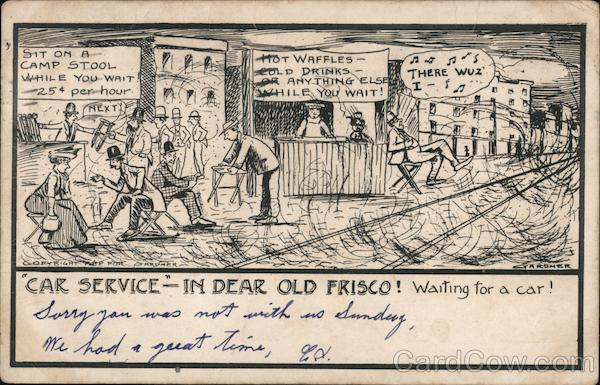 SIT ON A
CAMP STOOL
WHILE YOU WAIT!
25¢ per hour.
NEXT!
HOT WAFFLES -
COLD DRINKS
OR ANYTHING ELSE
WHILE YOU WAIT!
THERE WUZ
I -
COPYRIGHT FOR GARDNER
GARDNER
"CAR SERVICE" - IN DEAR OLD FRISCO! Waiting for a car!
Sorry you was not with us Sunday,
We had a great time,
CardCow.com